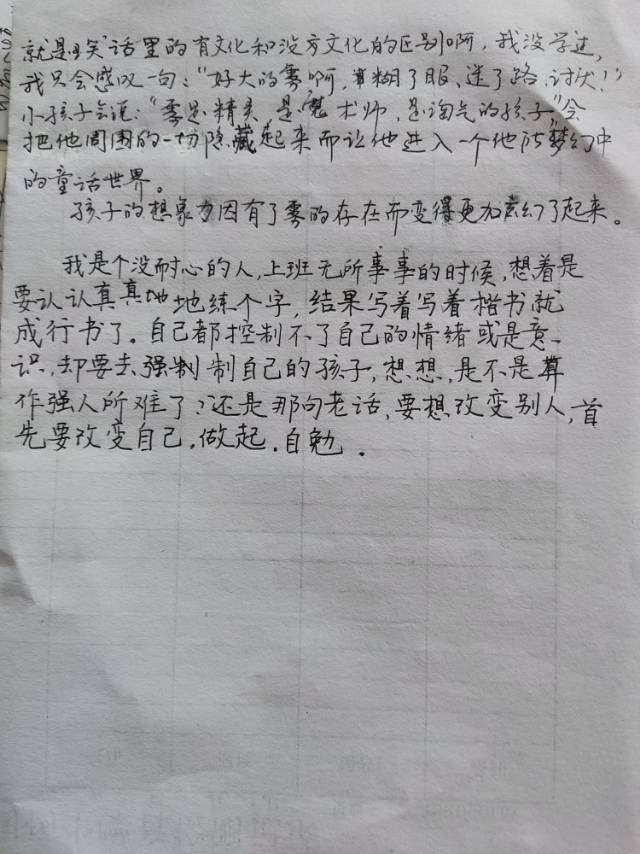 就是笑话里的有文化和没有文化的区别啊，我没学过，
我只会感叹一句："好大的雾啊，糊了眼、迷了路，讨厌！"
小孩子会说："雾是精灵，是魔术师，是淘气的孩子"会
把他周围的一切隐藏起来而让他进入一个他所梦幻中
的童话世界。
孩子的想象力因有了雾的存在而变得更加幻了起来。
我是个没耐心的人，上班无所事事的时候，想着是
要认认真真地地练个字，结果写着写着楷书就
成行书了。自己都控制不了自己的情绪或是意
识，却要去强制制自己的孩子，想想，是不是算
作强人所难了？还是那句老话，要想改变别人，首
先要改变自己。做起。自勉。